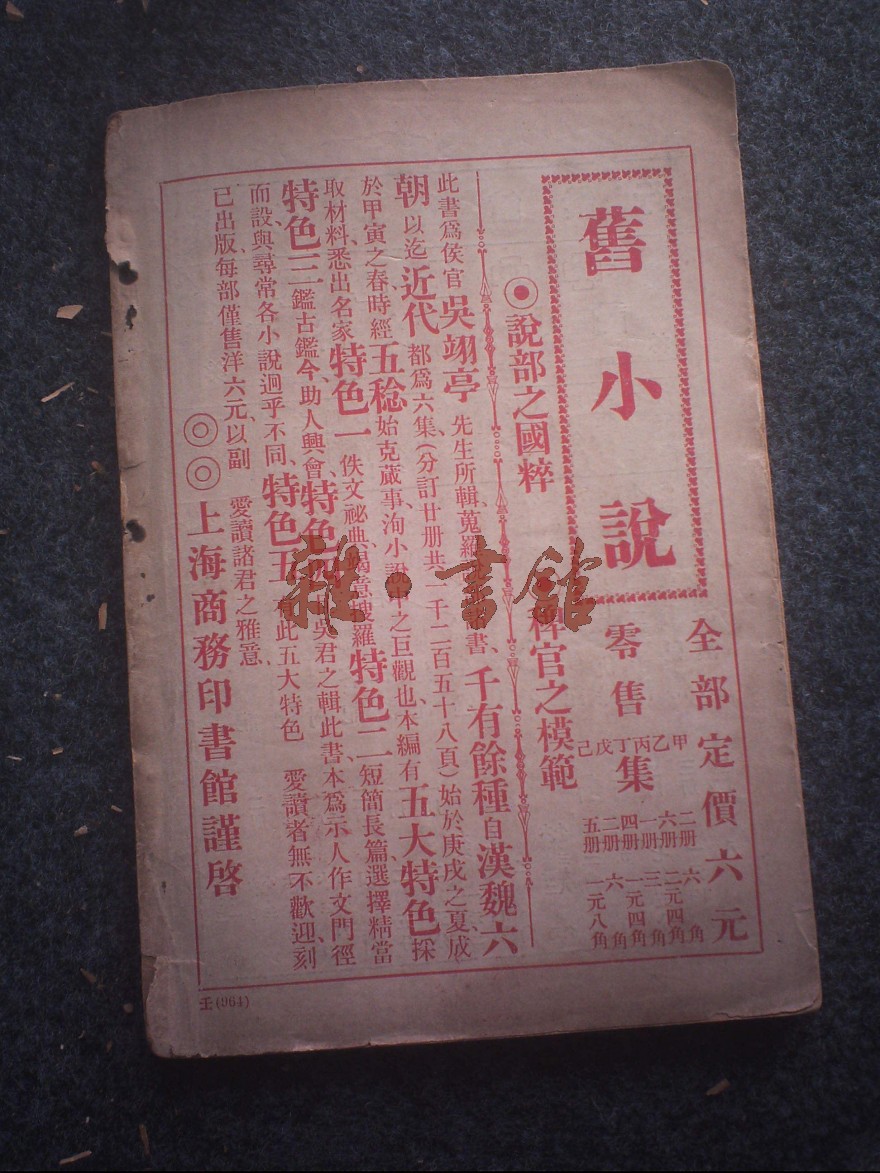 舊小說
全部定價六元
零售
甲乙丙丁戊己集
二册 六角
六册 二元四角
一册 三角
四册 一元四角
二册 六角
五册 一元八角
◉說部之國粹
稗官之模範
此書爲侯官吳翊亭先生所輯、蒐羅書、千有餘種自漢魏六
朝以迄近代都爲六集(分訂廿册共一千二百五十八頁)始於庚戌之夏、成
於甲寅之春、時經五稔始克蕆事、洵小說中之巨觀也、本編有五大特色採
取材料、悉出名家、特色一佚文祕典、意搜羅特色二短簡長篇選擇精當
特色三鑑古鑑今、助人興會、特色四吳君之輯此書、本爲示人作文門徑
而設、與尋常各小說迥乎不同、特色五有此五大特色 愛讀者無不歡迎、刻
已出版、每部僅售洋六元、以副 愛讀諸君之雅意、
◎◎上海商務印書館謹啓
壬(964)
雜·書館